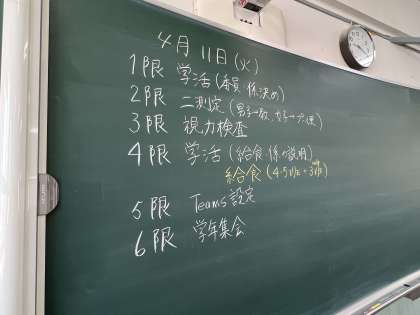 4月11日(火)
1限 学活(委員・係決め)
2限 二測定(男子→
3限 視力検査
4限 学活(給食・係の説明)
給食(4.5
5限 Teams設定
6限 学年集会